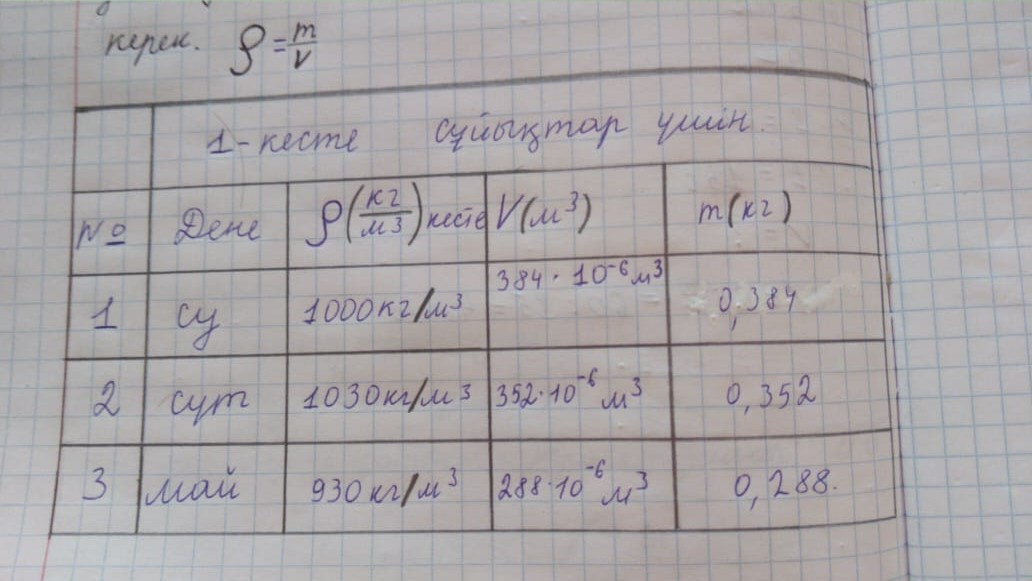 керек. ρ=m/V
1-кесте сұйықтар үшін.
№ Дене ρ(кг/м3)кесте V(м³) m(кг)
1 су 1000кг/м³ 384·10⁻⁶м³ 0,384
2 сүт 1030кг/м³ 352·10⁻⁶м³ 0,352
3 май 930кг/м³ 288·10⁻⁶м³ 0,288.